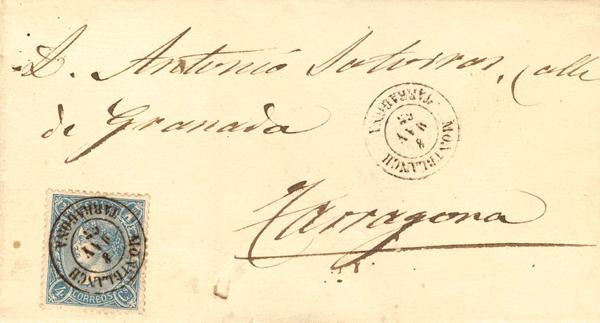 D. Antonio Satorras, calle
de Granada
Tarragona
MONTBLANCH
8
MAY
65
TARRAGONA
MONTBLANCH
8
MAY
65
TARRAGONA
CORREOS
4 Cs